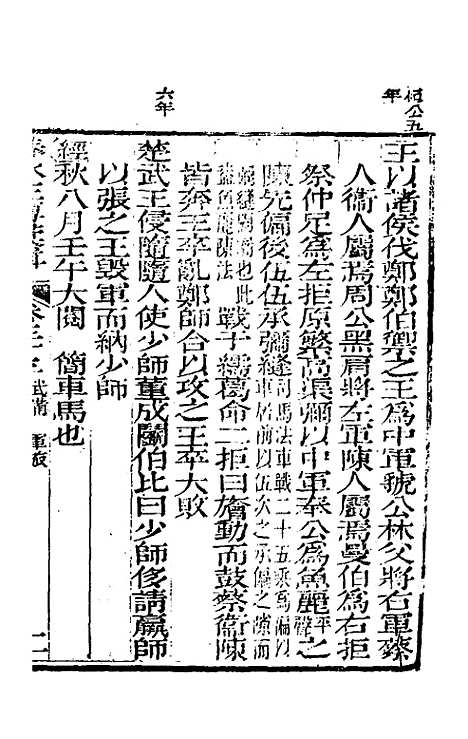 桓公五年
王以諸侯伐鄭鄭伯禦之王為中軍虢公林父將右軍蔡
人衞人屬焉周公黑肩將左軍陳人屬焉曼伯為右拒
祭仲足為左拒原繁高渠彌以中軍奉公為魚麗平聲之
陳先偏後伍伍承彌縫司馬法車戰二十五乘為偏以車居前以伍次之承偏之隙而
彌縫闕漏也此蓋魚麗陳法戰于繻葛命二拒曰旝動而鼓蔡衞陳
皆奔王卒亂鄭師合以攻之王卒大敗
六年
楚武王侵隨隨人使少師董成鬬伯比曰少師侈請羸師
以張之王毀軍而納少師
經秋八月壬午大閱 簡車馬也
武備 軍旅